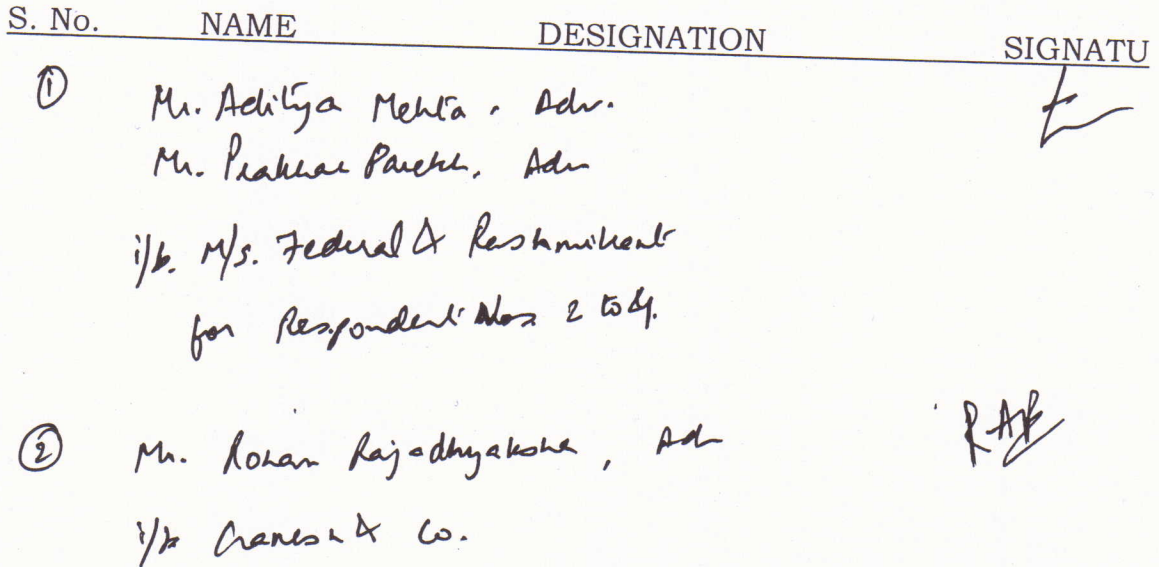 S. No. NAME DESIGNATION SIGNATU
① Mr. Aditya Mehta, Adv.
Mr. Prakhar Parekh, Adv
i/b. M/s. Federal & Rashmikant
for Respondent Nos 2 to 4.
② Mr. Rohan Rajadhyaksha, Adv RAB
i/b Ganesh & Co.